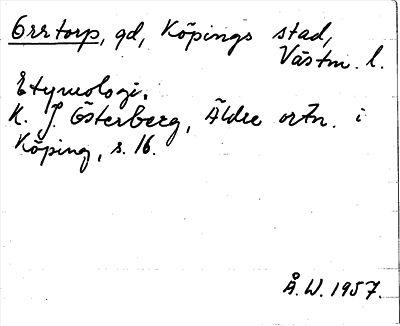 Orrtorp, gd, Köpings stad,
Västm. l.
Etymologi.
K. J. Österberg, Äldre ortn. i
Köping, s. 16.
Å. W. 1957.